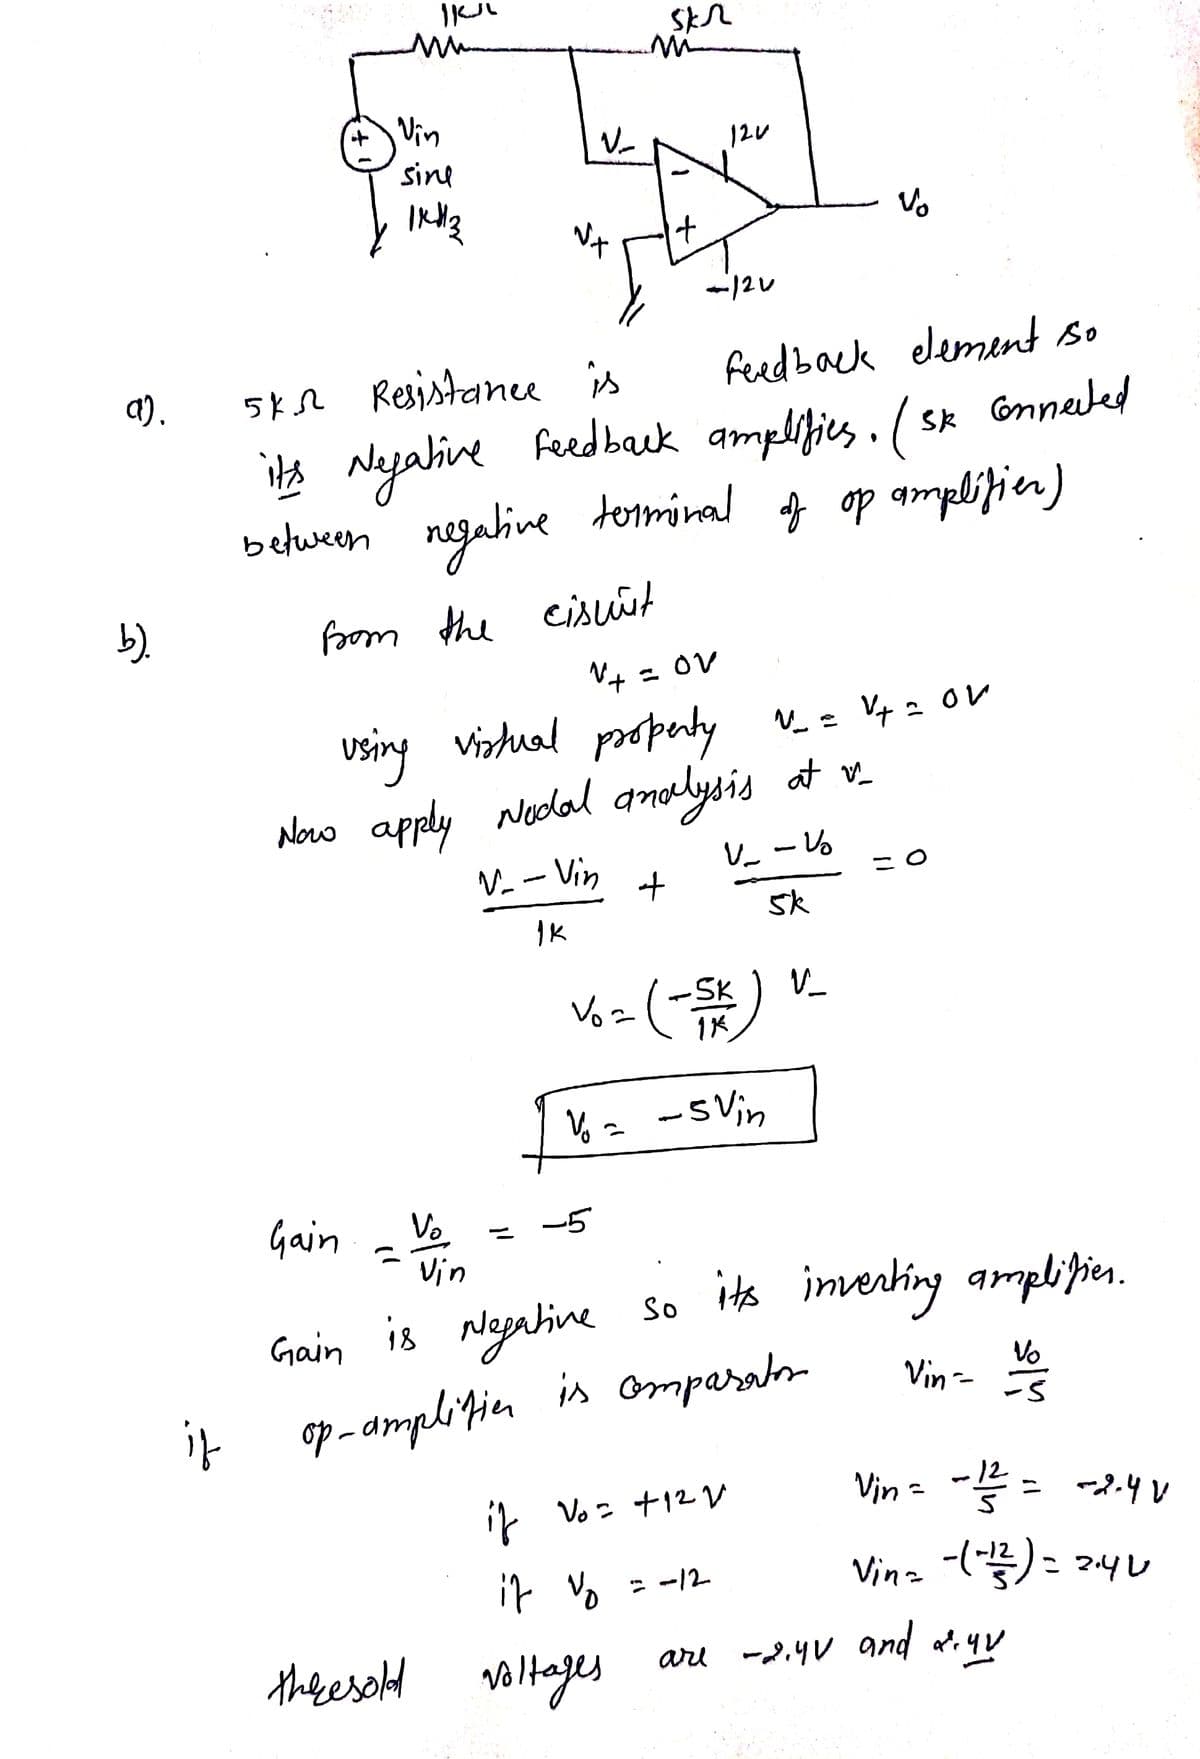 1KΩ 5kΩ
Vin
sine
1KHz
V- 12V
-
V+ +
-12V
Vo
a). 5kΩ Resistance is feedback element so
its Negative feedback amplifies. (5k Connected
between negative terminal of op amplifier)
b). from the circuit
V+ = 0V
using virtual property V- = V+ = 0V
Now apply Nodal analysis at V-
V- - Vin / 1K + V- - Vo / 5k = 0
Vo = (-5K / 1K) V-
Vo = -5Vin
Gain = Vo / Vin = -5
Gain is Negative so its inverting amplifier.
if op-amplifier is comparator Vin = Vo / -5
if Vo = +12V Vin = -12/5 = -2.4V
if Vo = -12 Vin = -(-12/5) = 2.4V
threesold voltages are -2.4V and 2.4V